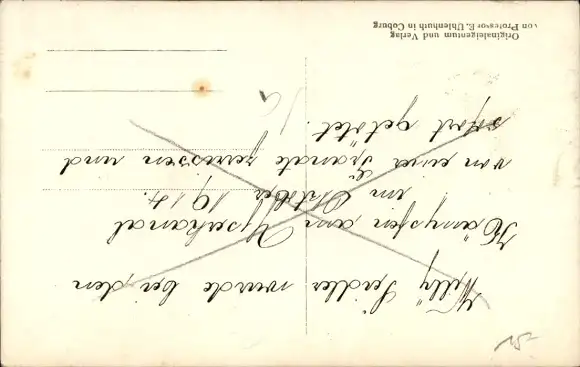 Willy Seidler wurde bei den
Kämpfen am Yserkanal
im Oktober 1914.
von einer Granate zerrissen und
sofort getötet.
Originaleigentum und Verlag
von Professor E. Uhlenhuth in Coburg